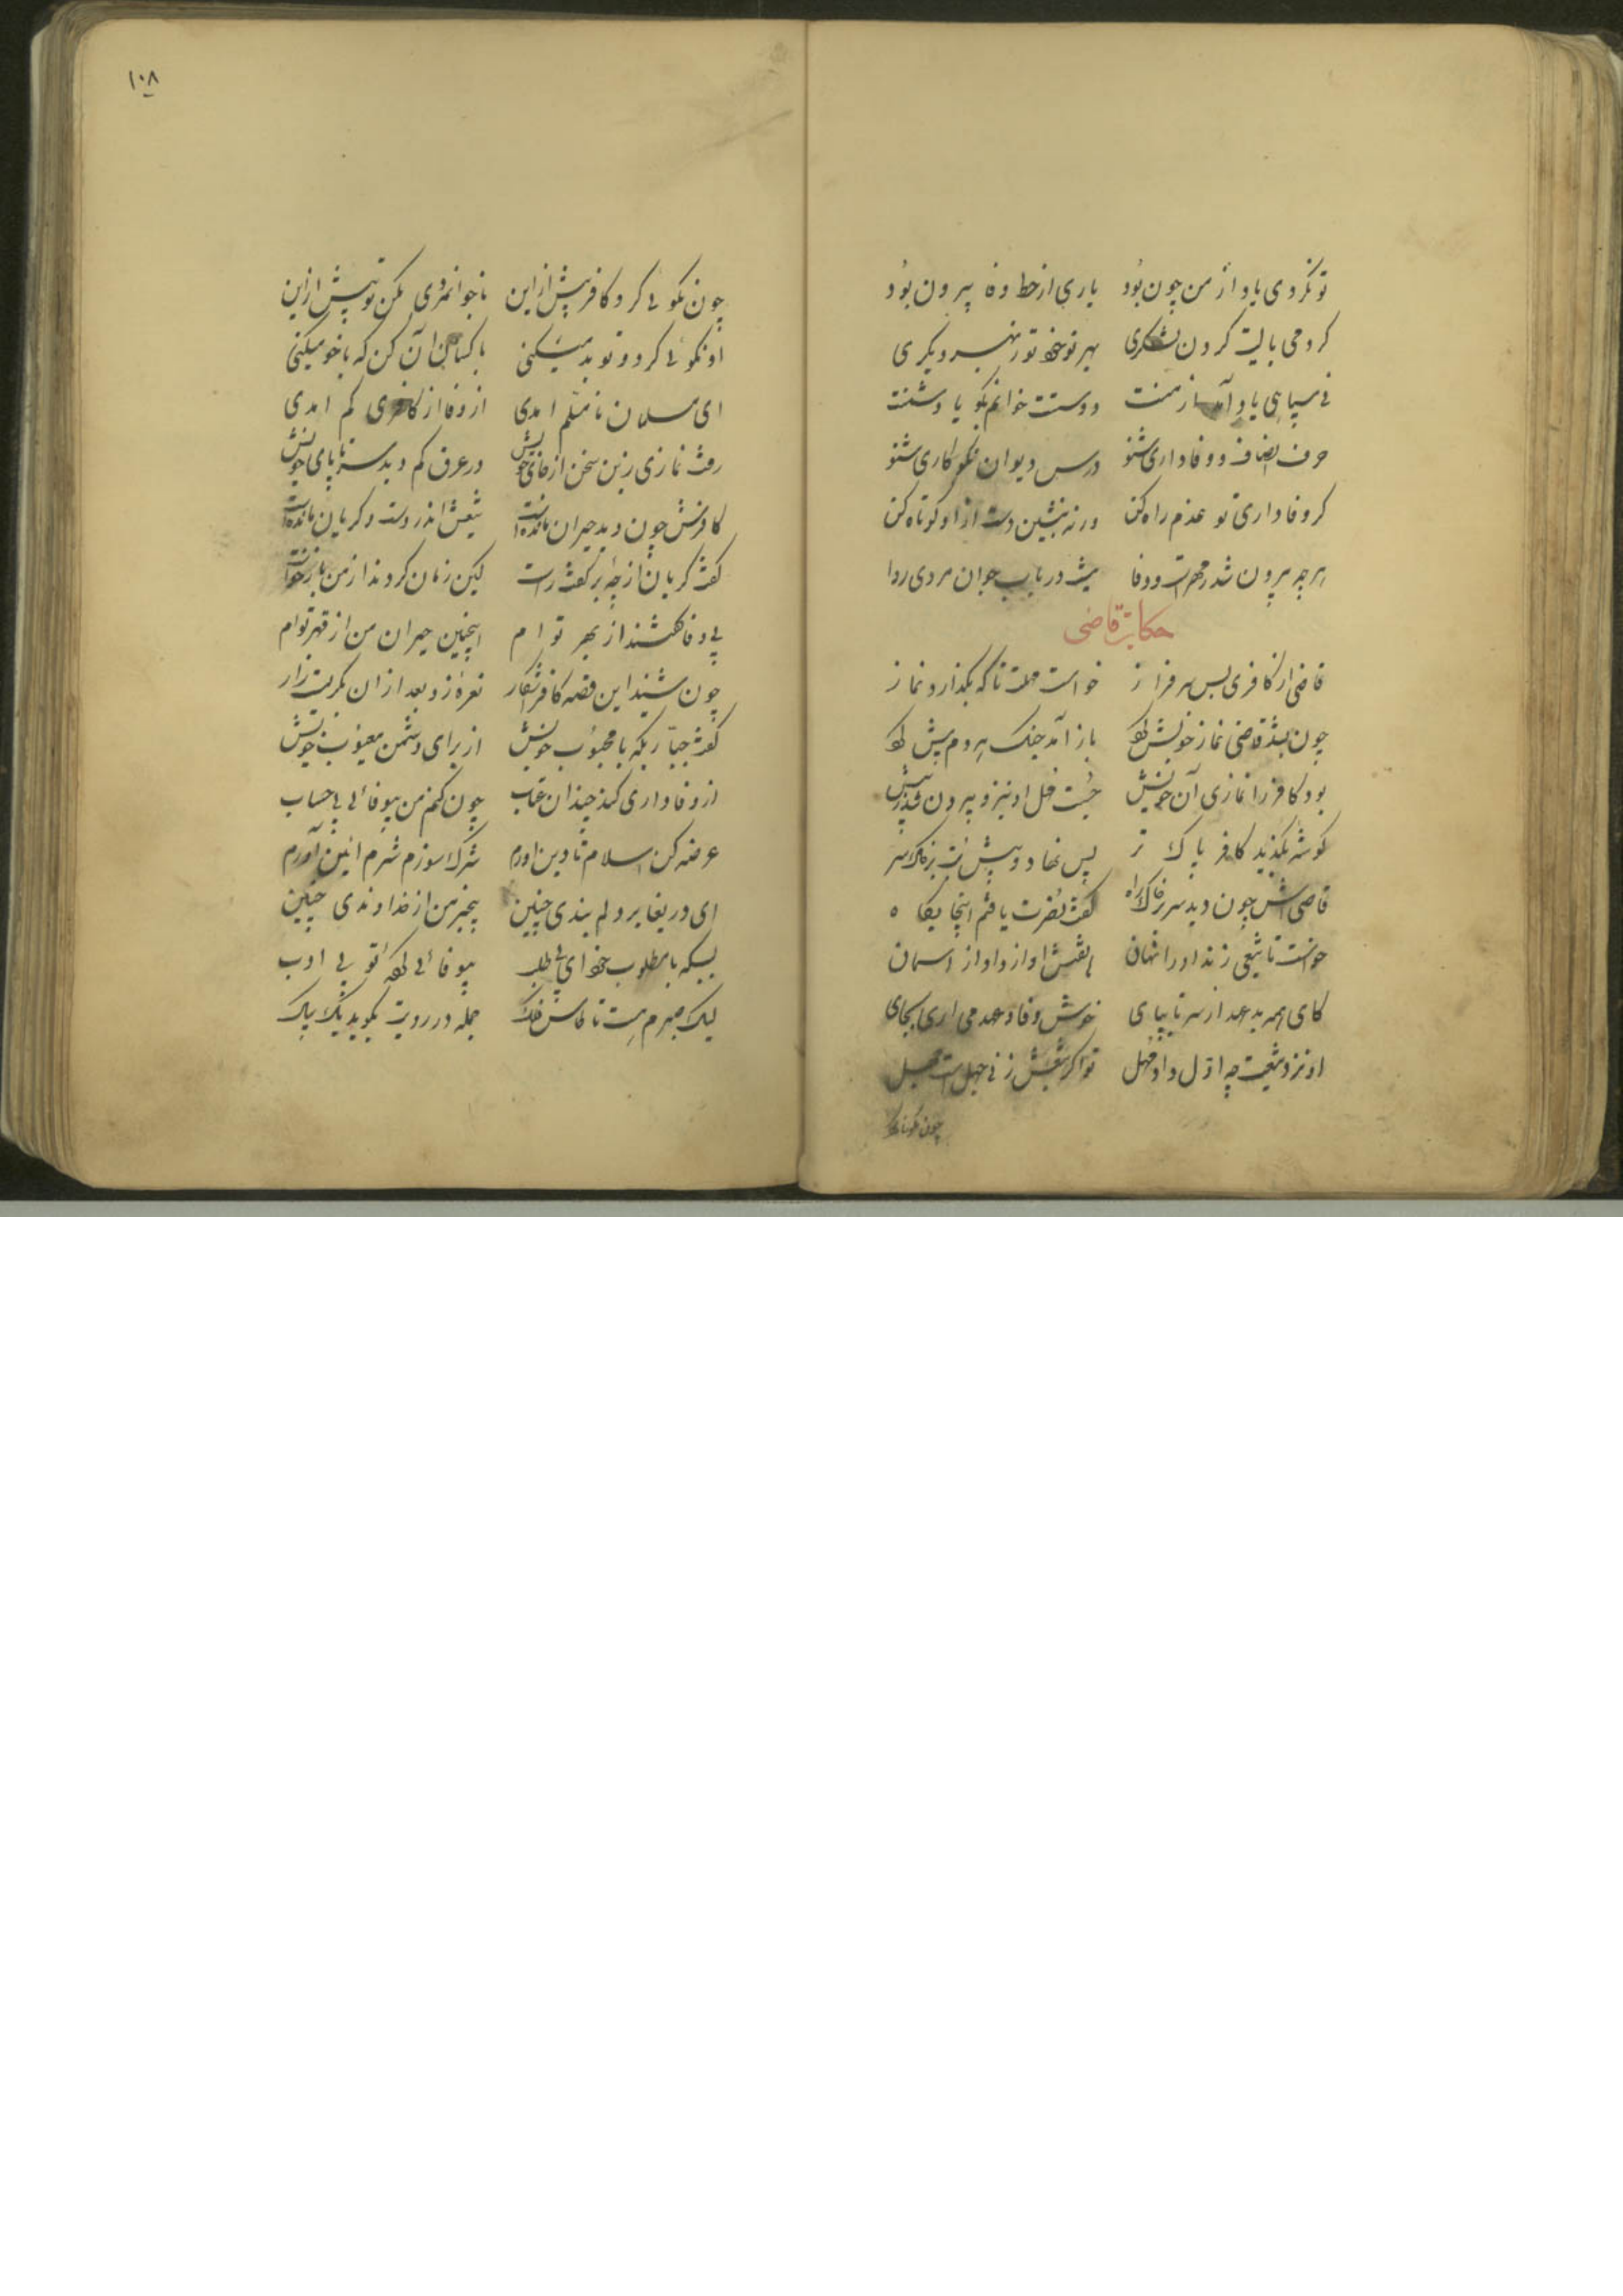 تو نکردی یاد از من چون بُود یاری از خط وفا بیرون بوُد
گر همی بایست کردن لشکری بهر تو خود تو ز بهر دیگری
نی سپاهی یاد آمد از منت دوست خوانم نکو یا دشمنت
حرف انصاف و وفاداری شنو درس دیوان نکوکاری شنو
گر وفاداری تو عزم راه کن ورنه بنشین دست ازا و کوتاه کن
هرچه بیرون شد ز مهرت و وفا نیست در باب جوان مردی روا
حکایت قاضی
قاضی از کافری بس سرفراز خواست مهلت تا که بگذارد نماز
چون بشد قاضی نماز خویش کرد باز آمد جنک هر دم بیش کرد
بود کافر را نمازی آن خویش جست مهل او نیز و بیرون شد ز پیش
گوشه بگزید کافر پاک تر پس نهاد و پیش بُت بر خاک سر
قاضی اش چون دید سر بر خاک راه گفت نُصرت یافتم اینجا یکاه
خواست تا تیغی زند او را نهان هاتفش اواز داد از اسمان
کای همه بد عهد از سر تا بپای خوش وفا و عهد می اری بجای
او نزد تیغت چه اوّل داد مهل تو اگر تیغش زنی جهل است جهل
چون نکوئی
۱۰۸
چون نکوئی کرد کافر پیش ازاین ناجوانمردی مکن تو بیش ازاین
او نکوئی کرد و تو بد میکنی با کسان آن کن که با خود میکنی
ای مسلمان نامسلّم امدی از وفا از کافری کم امدی
رفت نمازی زین سخن از جای خویش در عرق گم دید سر تا پای خویش
کافرش چون دید حیران مانده است تیغش اندر دست و گریان مانده است
گفت گریان از چهٔ برگفت راست کین زمان کردند از من بازخواست
بی وفا گفتند از بهر تو ام اینچنین حیران من از قهر تو ام
چون شنید این قصه کافر آشکار نعرهٔ زد بعد ازان بگریست زار
گفت جبّاریکه با محبوُب خویش از برای دشمن معیوُب خویش
از وفاداری کند چندان عتاب چون کنم من بیوفائی بی حساب
عرضه کن اسلام تا دین اورم شرک سوزم شرم ائین آورم
ای دریغا بر دلم بندی چنین بیخبر من از خداوندی چنین
بسکه با مطلوب خود ای بی طلب بیوفائی کردهٔ تو بی ادب
لیک صبرم هست تا طاس فلک جمله در رویت بگوید یک بیک